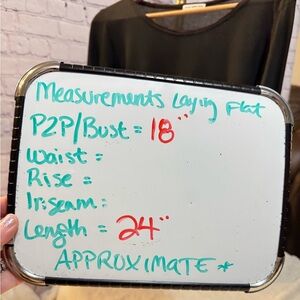 Measurements Laying Flat
P2P/Bust = 18"
Waist =
Rise =
Inseam:
Length = 24"
APPROXIMATE *